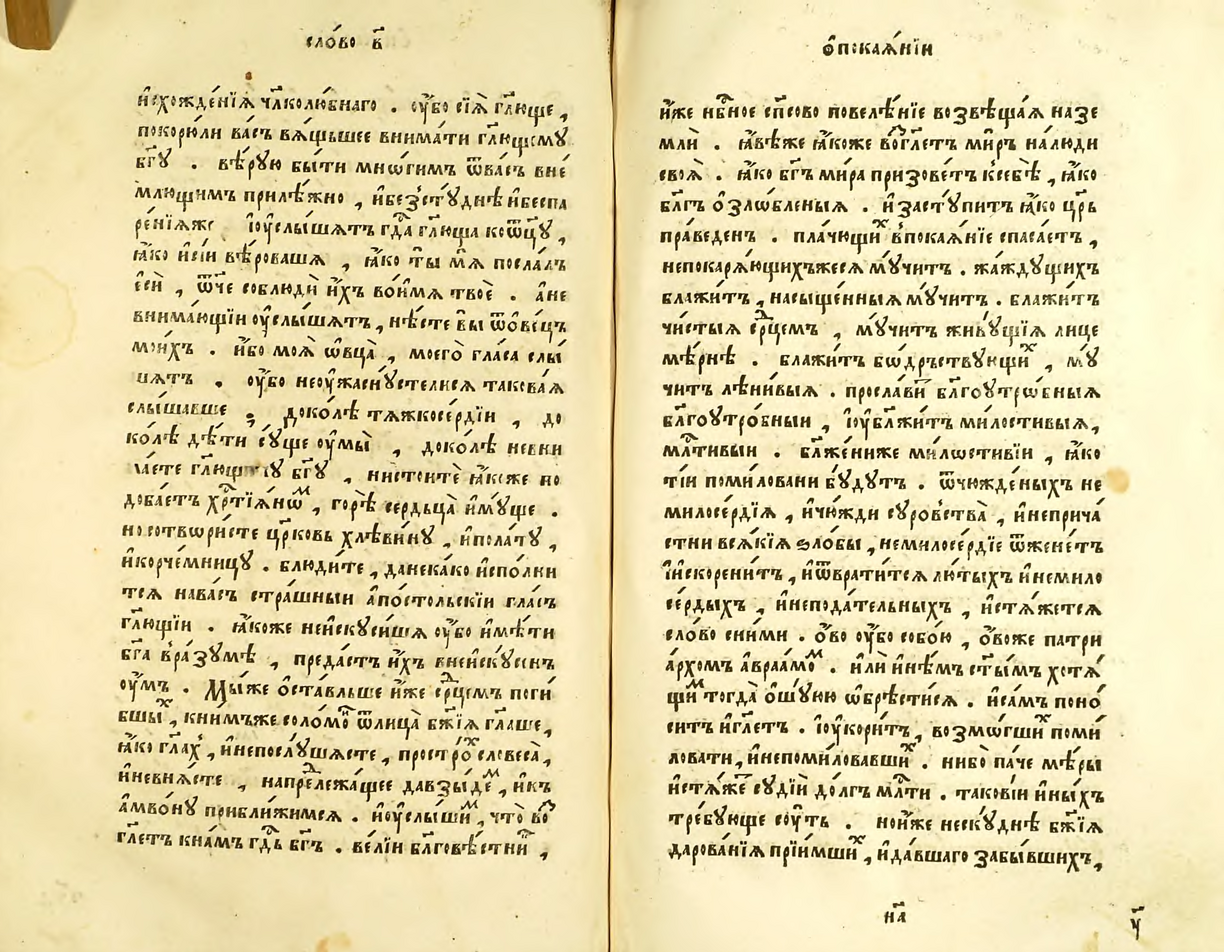 сло́во в҃
и҆схожде́нїѧ чл҃колю́бнаго . оу҆́бо сїѧ̀ гл҃юще ,
покорю́ли ва́съ вѧ́щьшее внима́ти гл҃ющемꙋ
бг҃ꙋ . вѣ́рꙋю бы́ти мнѡ́гимъ ѿва́съ вне́
млющимъ прилѣ́жно , и҆без̾стꙋ́днѣ и҆беспа
ре́нїѧже і҆оу҆слы́шѧтъ гдⷭ҇а гл҃юща коѿцꙋ̀ ,
ꙗ҆́ко и҆сїи вѣ́ровашѧ , ꙗ҆́ко ты̀ мѧ̀ посла́лъ
є҆сѝ , ѿч҃е соблюдѝ и҆́хъ воимѧ твоѐ . а҆не
внима́ющїи оу҆слы́шѧтъ , нѣ́сте вы̀ ѿо҆ве́цъ
мои́хъ . и҆́бо моѧ̀ ѡ҆вца̀ , моего̀ гла́са слы́
шѧтъ . оу҆́бо неоу҆жаснꙋ́стелисѧ такова́ѧ
слы́шавше ; доко́лѣ тѧжкосе́рдїи , до
ко́лѣ дѣ́ти сꙋ́ще оу҆мы̀ , доко́лѣ невни
ма́ете гл҃ющꙋмꙋ бг҃ꙋ , нистоитѐ ꙗ҆́коже по
доба́етъ хрⷭ҇тїѧ́нѡⷨ , горѣ̀ се́рдьца и҆мꙋ́ще .
но сотвѡри́сте цр҃ковь хлѣ́винꙋ , и҆пола́тꙋ ,
и҆корче́мницꙋ . блюди́те , данека́ко и҆спо́лни
тсѧ нава́съ стра́шныи а҆по́стольскїи гла́съ
гл҃ющїи . ꙗ҆́коже неи҆скꙋси́шѧ оу҆́бо и҆мѣ́ти
бг҃а вра́зꙋмѣ , преда́стъ и҆́хъ внеи҆скꙋ́сенъ
оу҆́мъ . Мы́же ѡ҆ста́вльше и҆́же срⷣцемъ поги́
бшыⷯ , книмъже соломоⷩ ѿлица̀ бж҃їѧ гл҃аше ,
ꙗ҆́ко гл҃ахъ , и҆непослꙋ́шѧсте , простро́ⷯ словеса̀ ,
и҆невнѧ́сте , напреⷣлежа́щее давзы́деⷨ , и҆къ
а҆мво́нꙋ прибли́жимсѧ . и҆оу҆слы́шиⷨ , что̀ во
гл҃етъ кна́мъ гдⷭ҇ь бг҃ъ . ве́лїи бл҃гове́стниⷦ ,
ѻ҆покаѧ́нїи
и҆́же нбⷭ҇ное сп҃сово повелѣ́нїе возвѣща́ѧ назе
млѝ . ꙗ҆вѣ́же ꙗ҆́коже возгл҃етъ ми́ръ налю́ди
своѧ̀ . ꙗ҆́ко бг҃ъ ми́ра призове́тъ ксебѣ̀ , ꙗ҆́ко
бл҃гъ ѻ҆злѡ́бленыѧ . и҆засту́питъ ꙗ҆́ко цр҃ь
пра́веденъ . пла́чющиⷯ впокаѧ́нїе спаса́етъ ,
непокарѧ́ющихъжесѧ мꙋ́читъ . жа́ждꙋщихъ
блажи́тъ , насыще́нныѧ мꙋ́читъ . блажи́тъ
чи́стыѧ срⷣцемъ , мꙋ́читъ живꙋ́щїѧ лице
мѣ́рнѣ . блажи́тъ бѡ́дръствꙋющиⷯ , мꙋ́
читъ лѣни́выѧ . просла́виⷮ бл҃гоутрѡ́бныѧ
бл҃гоутро́бныи , і҆оу҆блажи́тъ ми́лостивыѧ ,
млⷭ҇тивыи . бл҃же́ниже ми́лѡстивїи , ꙗ҆́ко
ті́и поми́ловани бꙋ́дꙋтъ . ѿчюжде́ныхъ не
милосе́рдїѧ , и҆чю́жди сꙋро́вства , и҆неприча́
стни всѧ́кїѧ ѕло́бы , немилосе́рдїе ѿжене́тъ
і҆и҆скорени́тъ , и҆ѿврати́тсѧ лю́тыхъ и҆немило
се́рдыхъ , и҆непода́тельныхъ , и҆стѧ́жетсѧ
сло́во сни́ми . ѻ҆́во оу҆́бо собо́ю , ѻ҆́воже патри
а́рхомъ а҆враамоⷨ . и҆лѝ и҆нѣ́мъ ст҃ы́мъ хотѧ́
щиⷨ тогда̀ ѻ҆шꙋ́юю ѡ҆брѣ́стисѧ . и҆са́мъ поно́
ситъ и҆гл҃етъ . і҆оу҆кори́тъ , возмо́гшиⷯ поми́
ловати , и҆непоми́ловавшиⷯ . нибо па́че мѣ́ры
и҆стѧ́жеⷮ сꙋдїѝ до́лгъ млⷭ҇ти . такові́и и҆ны́хъ
тре́бꙋюще сꙋ́ть . нои҆́же нескꙋ́днѣ бж҃їѧ
дарова́нїѧ прїи́мшиⷯ , и҆да́вшаго забы́вшихъ ,
н҃а
ч҃